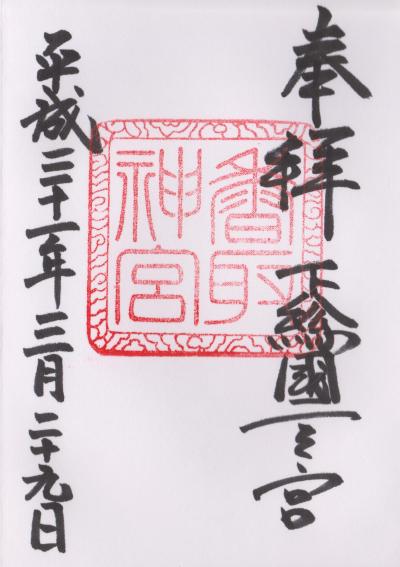 奉拝 下総國一之宮
香取
神宮
平成三十一年三月二十九日